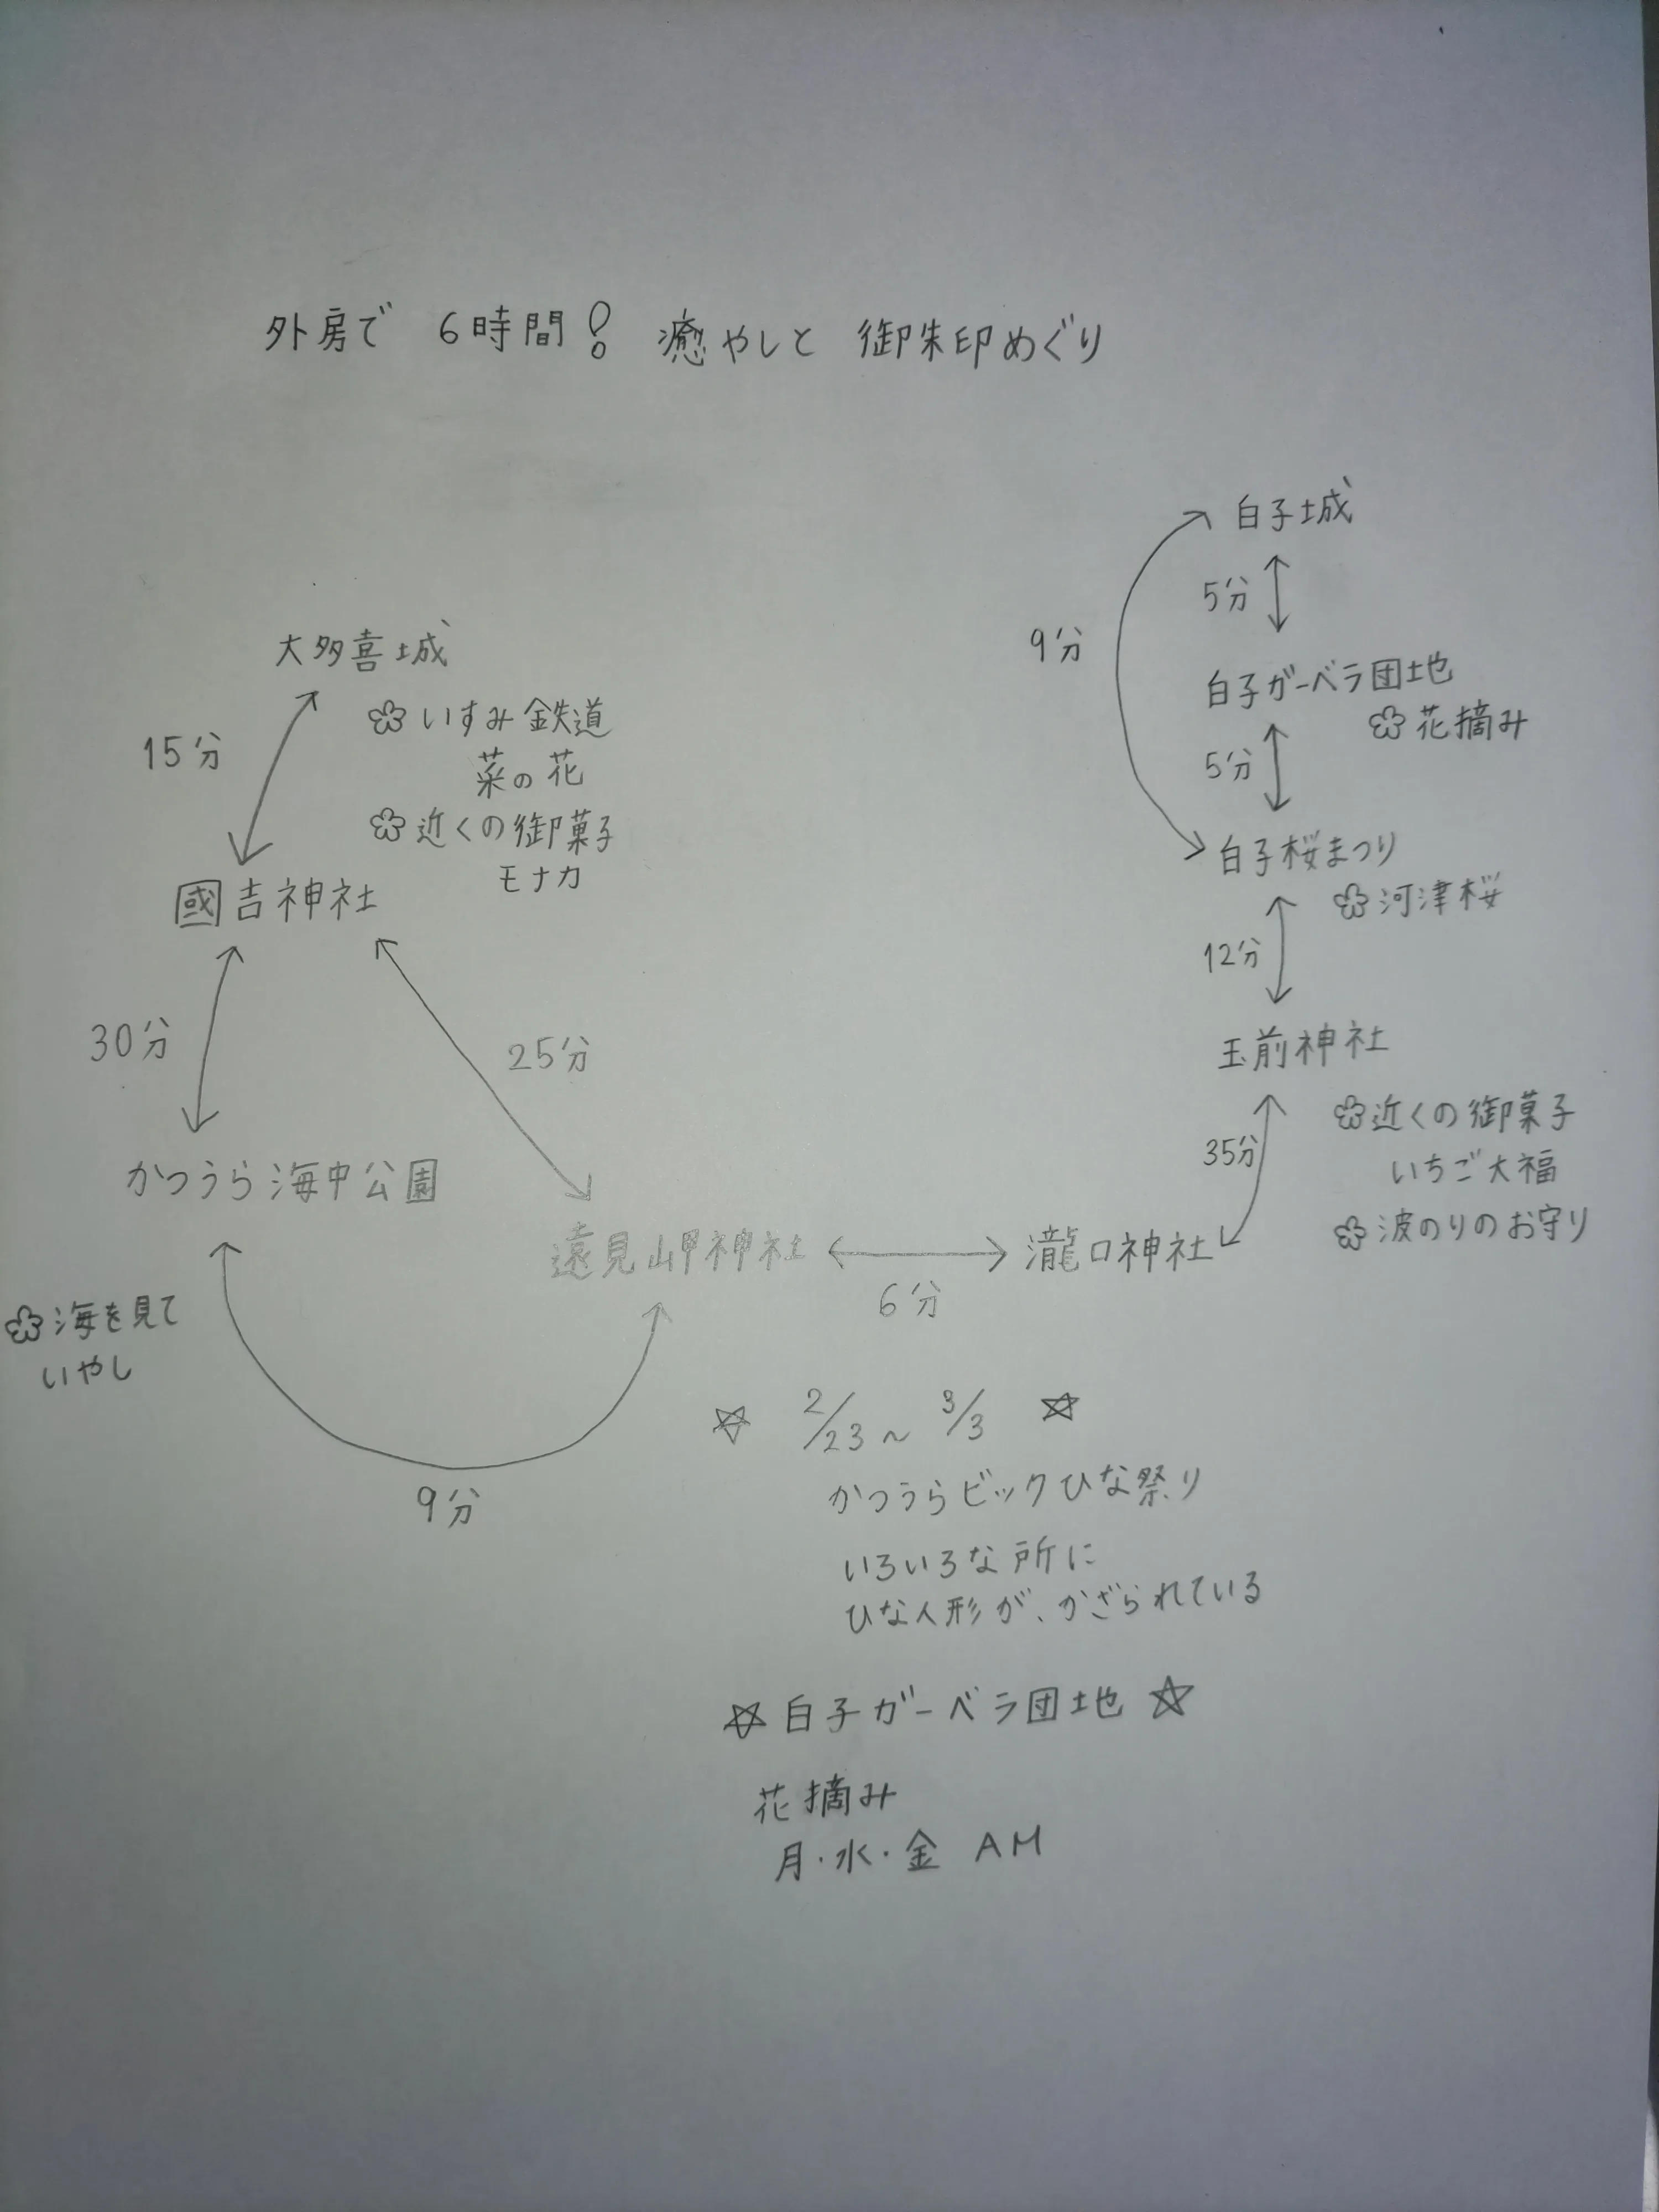 外房で 6時間! 癒やしと 御朱印めぐり
白子城
5分
9分
白子ガーベラ団地
花摘み
5分
白子桜まつり
河津桜
12分
玉前神社
近くの御菓子
いちご大福
波のりのお守り
35分
大多喜城
いすみ鉄道
菜の花
近くの御菓子
モナカ
15分
國吉神社
30分
25分
かつうら海中公園
海を見て
いやし
遠見岬神社
6分
瀧口神社
9分
☆ 2/23~3/3 ☆
かつうらビックひな祭り
いろいろな所に
ひな人形が、かざられている
☆白子ガーベラ団地☆
花摘み
月・水・金 AM